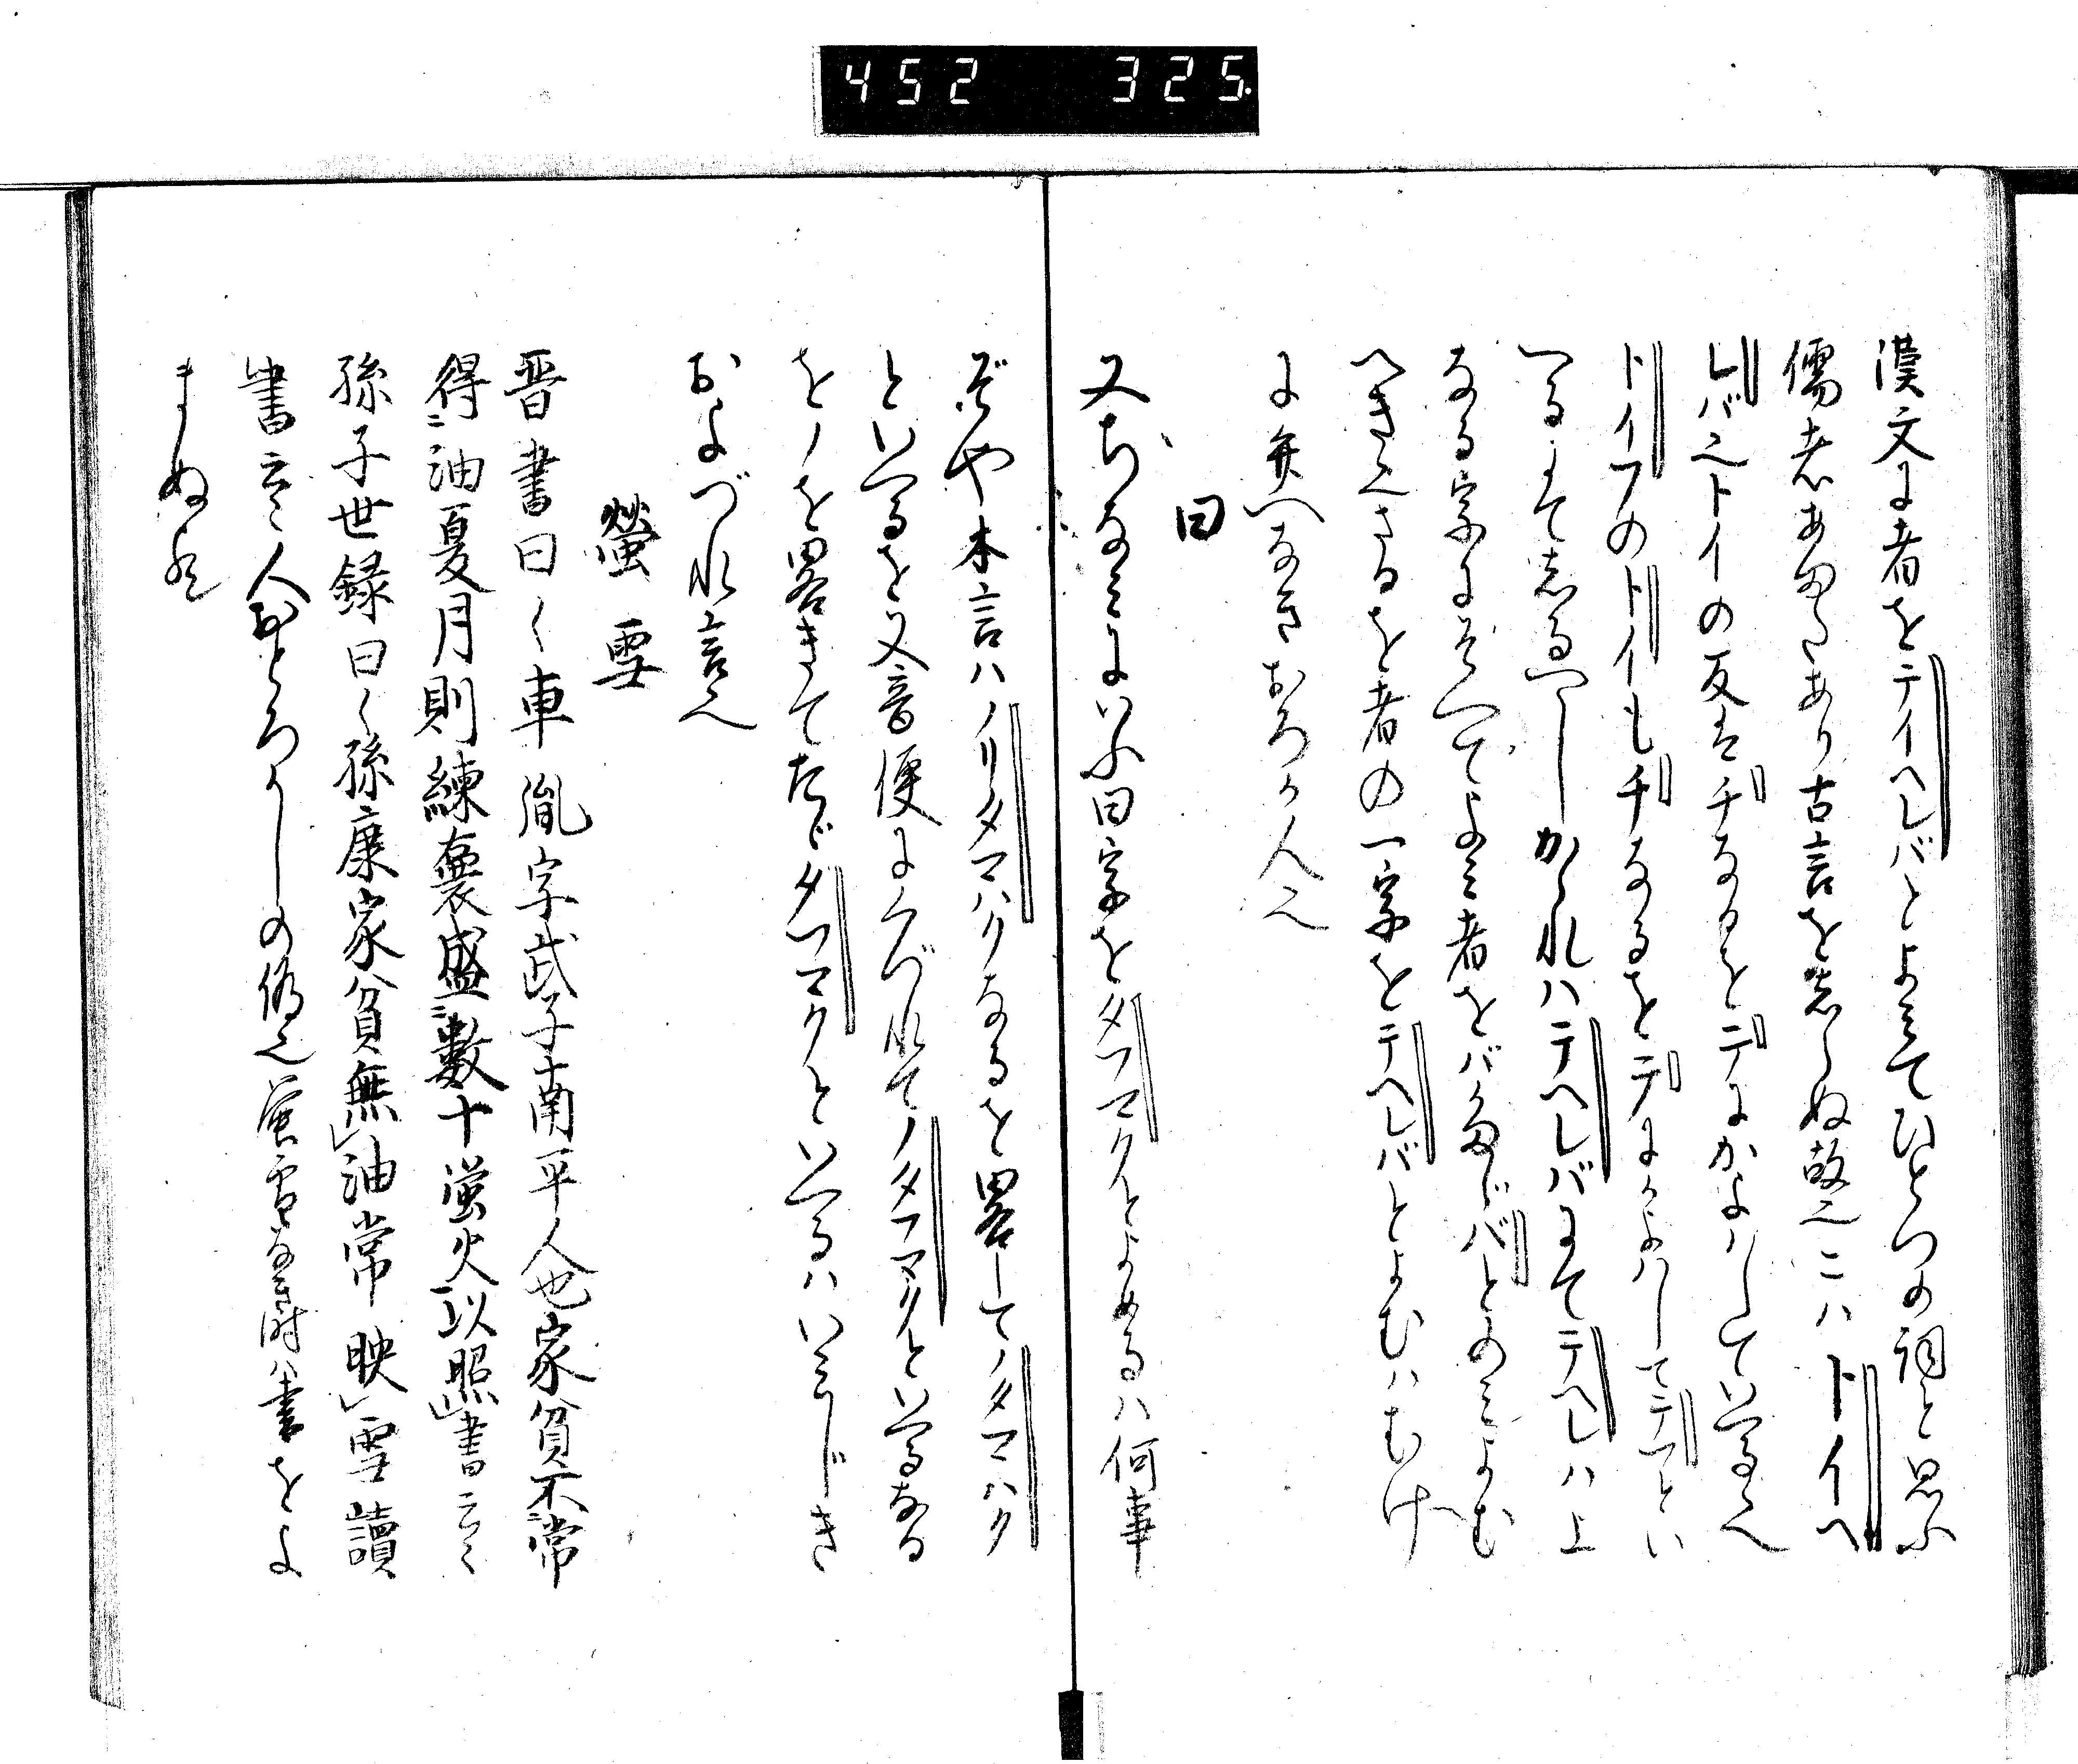 452 325.
漢文に者をテイヘレバとよみてひとつの詞と思ふ
儒者あまたあり古言を志らぬ故也こハトイヘ
レバ也トイの反はチなるをテにかよハしていへる也
トイフのトイもチなるをテにかよハしてテフとい
へるにて志るべしかゝれハテヘレバにてテヘレハ上
なる字にそへてよミ者をバたゞバとのミよむ
べき也さるを者の一字をテヘレバとよむハむけ
に弁へなきおろか人也
曰
又ちなミにいふ曰字をタフマクとよめるハ何事
ぞや本言ハノリタマハクなるを畧してノタマハク
といへるを又音便にくづれてノタフマクといへるなる
をノを畧きてたゞタフマクといへるハいミじき
およづれ言也
螢雪
晋書曰く車胤字武子南平人也家貧不常
得油夏月則練囊盛數十螢火以照書云々
孫子世録曰く孫康家貧無油常映雪讀
書云々人おとろかしの偽也螢雪なき時ハ書をよ
まぬにや